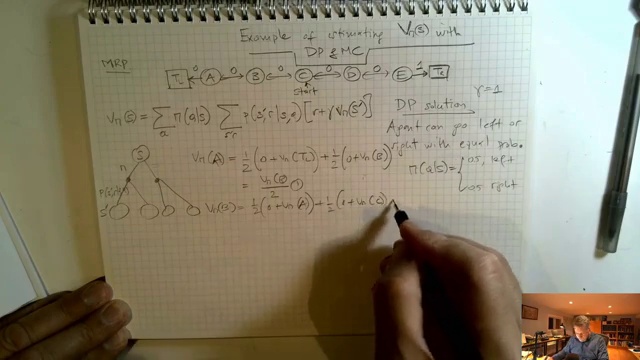 Example of estimating Vπ(s) with
DP & MC
MRP
TL 0 A 0 B 0 C 0 D 0 E 1 TR
start
Vπ(s) = ∑a π(a|s) ∑s'r p(s',r|s,a) [r + γ Vπ(s')]
DP solution γ=1
Agent can go left or
right with equal prob.
π(a|s) = { 0.5, left
0.5 right
S
π
s'
Vπ(A) = 1/2 (0 + Vπ(TL)) + 1/2 (0 + Vπ(B))
= Vπ(B)/2 ①
Vπ(B) = 1/2 (0 + Vπ(A)) + 1/2 (0 + Vπ(C))